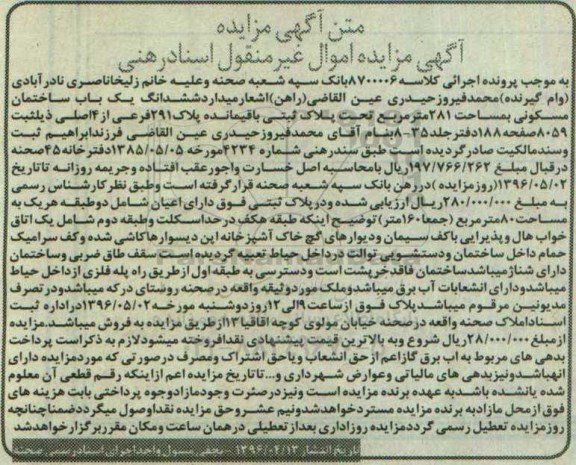 متن آگهی مزایده
آگهی مزایده اموال غیرمنقول اسنادرهنی
به موجب پرونده اجرائی کلاسه ۸۷۰۰۰۰۶بانک سپه شعبه صحنه وعلیه خانم زلیخاناصری نادرآبادی
(وام گیرنده)محمدفیروزحیدری عین القاضی(راهن)اشعارمیداردششدانگ یک باب ساختمان
مسکونی بمساحت ۲۸۱مترمربع تحت پلاک ثبتی باقیمانده پلاک۲۹۱فرعی از۴اصلی ذیلثبت
۸۰۵۹صفحه۱۸۸دفترجلد۳۵-۸بنام آقای محمدفیروزحیدری عین القاضی فرزندابراهیم ثبت
وسندمالکیت صادرگردیده است طبق سندرهنی شماره ۴۲۳۴مورخه ۱۳۸۵/۰۵/۰۵دفترخانه۴۵صحنه
درقبال مبلغ ۱۹۷/۷۶۶/۲۶۲ریال بامحاسبه اصل خسارت واجورعقب افتاده وجریمه روزانه تاتاریخ
۱۳۹۶/۰۵/۰۲(روزمزایده)دررهن بانک سپه شعبه صحنه قرارگرفته است وطبق نظرکارشناس رسمی
به مبلغ ۲۸۰/۰۰۰/۰۰۰ریال ارزیابی شده ودرپلاک ثبتی فوق دارای اعیان شامل دوطبقه هریک به
مساحت۸۰مترمربع (جمعا۱۶۰متر) توضیح اینکه طبقه هکف درحداسکلت وطبقه دوم شامل یک اتاق
خواب هال وپذیرایی باکف سیمان ودیوارهای گچ خاک آشپزخانه اپن دیسوارهاکاشی شده وکف سرامیک
حمام داخل ساختمان ودستشویی توالت درداخل حیاط تعبیه گردیده است سقف طاق ضربی وساختمان
دارای شناژمیباشدساختمان فاقدخرپشت است ودسترسی به طبقه اول ازطریق راه پله فلزی ازداخل حیاط
میباشدودارای انشعابات آب برق میباشدوملک موردوثیقه واقعه درصحنه روستای درکه میباشدودرتصرف
مدیونین مرقوم میباشدپلاک فوق ازساعت۹الی۱۲روزدوشنبه مورخه۱۳۹۶/۰۵/۰۲دراداره ثبت
اسناداملاک صحنه واقعه درصحنه خیابان مولوی کوچه اقاقیا۱۳ازطریق مزایده به فروش میباشد.مزایده
ازمبلغ۲۸/۰۰۰/۰۰۰ریال شروع وبه بالاترین قیمت پیشنهادی نقدافروخته میشودلازم به ذکراست پرداخت
بدهی های مربوط به اب برق گازاعم ازحق انشعاب ویاحق اشتراک ومصرف درصورتی که موردمزایده دارای
انهاباشدونیزبدهی های مالیاتی وعوارض شهرداری و...تاتاریخ مزایده اعم ازاینکه رقم قطعی آن معلوم
شده یانشده باشدبه عهده برنده مزایده است ونیزدرصئرت وجودمازادوجوه پرداختی بابت هزینه های
فوق ازمحل مازادبه برنده مزایده مستردخواهدشدونیم عشروحق مزایده نقداوصول میگرددضمناچنانچه
روزمزایده تعطیل رسمی گرددمزایده روزاداری بعدازتعطیلی درهمان ساعت ومکان مقرربرگزارخواهدشد
تاریخ انتشار ۱۳۹۶/۰۴/۱۳ - نجفی مسول واحداجرای اسنادرسمی صحنه